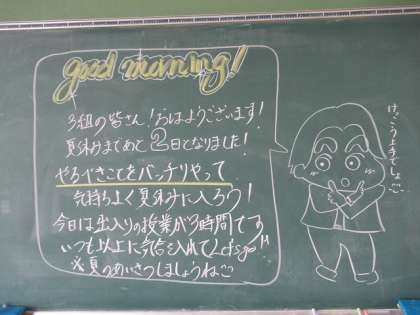 good morning!
3組の皆さん！おはようございます！
夏休みまであと2日となりました！
やるべきことをバッチリやって
気持ちよく夏休みに入ろう！
今日は出入りの授業が3時間です
いつも以上に気合を入れてLet's go!!
あいさつしましょうね